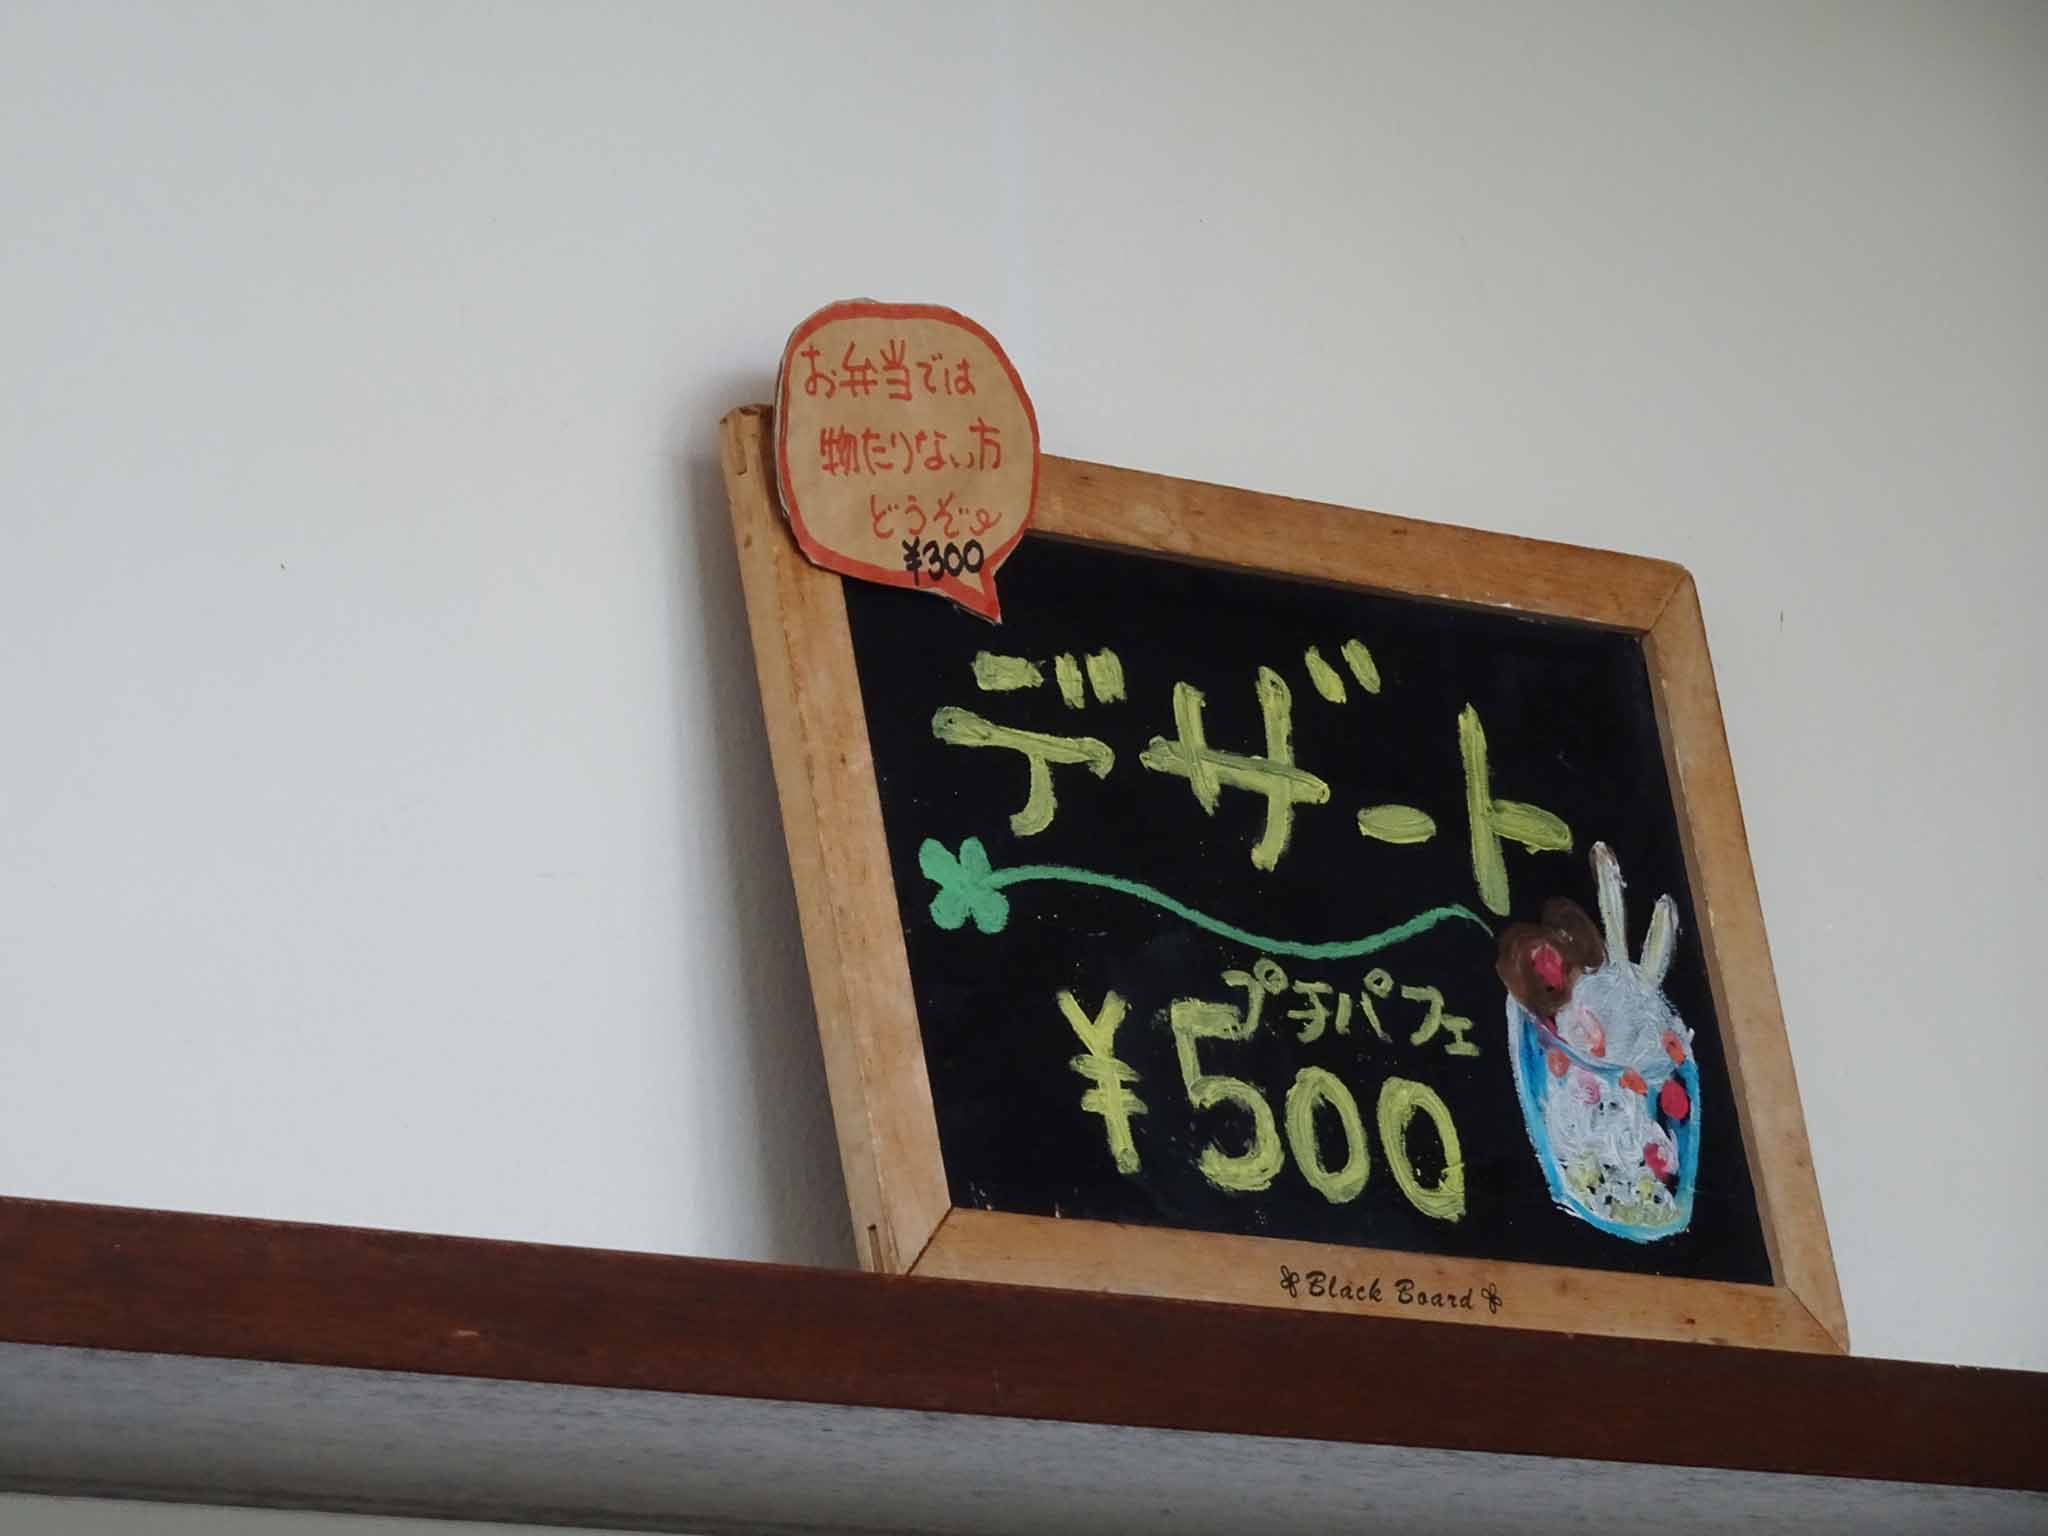 お弁当では
物たりない方
どうぞ
¥300
デザート
プチパフェ
¥500
Black Board